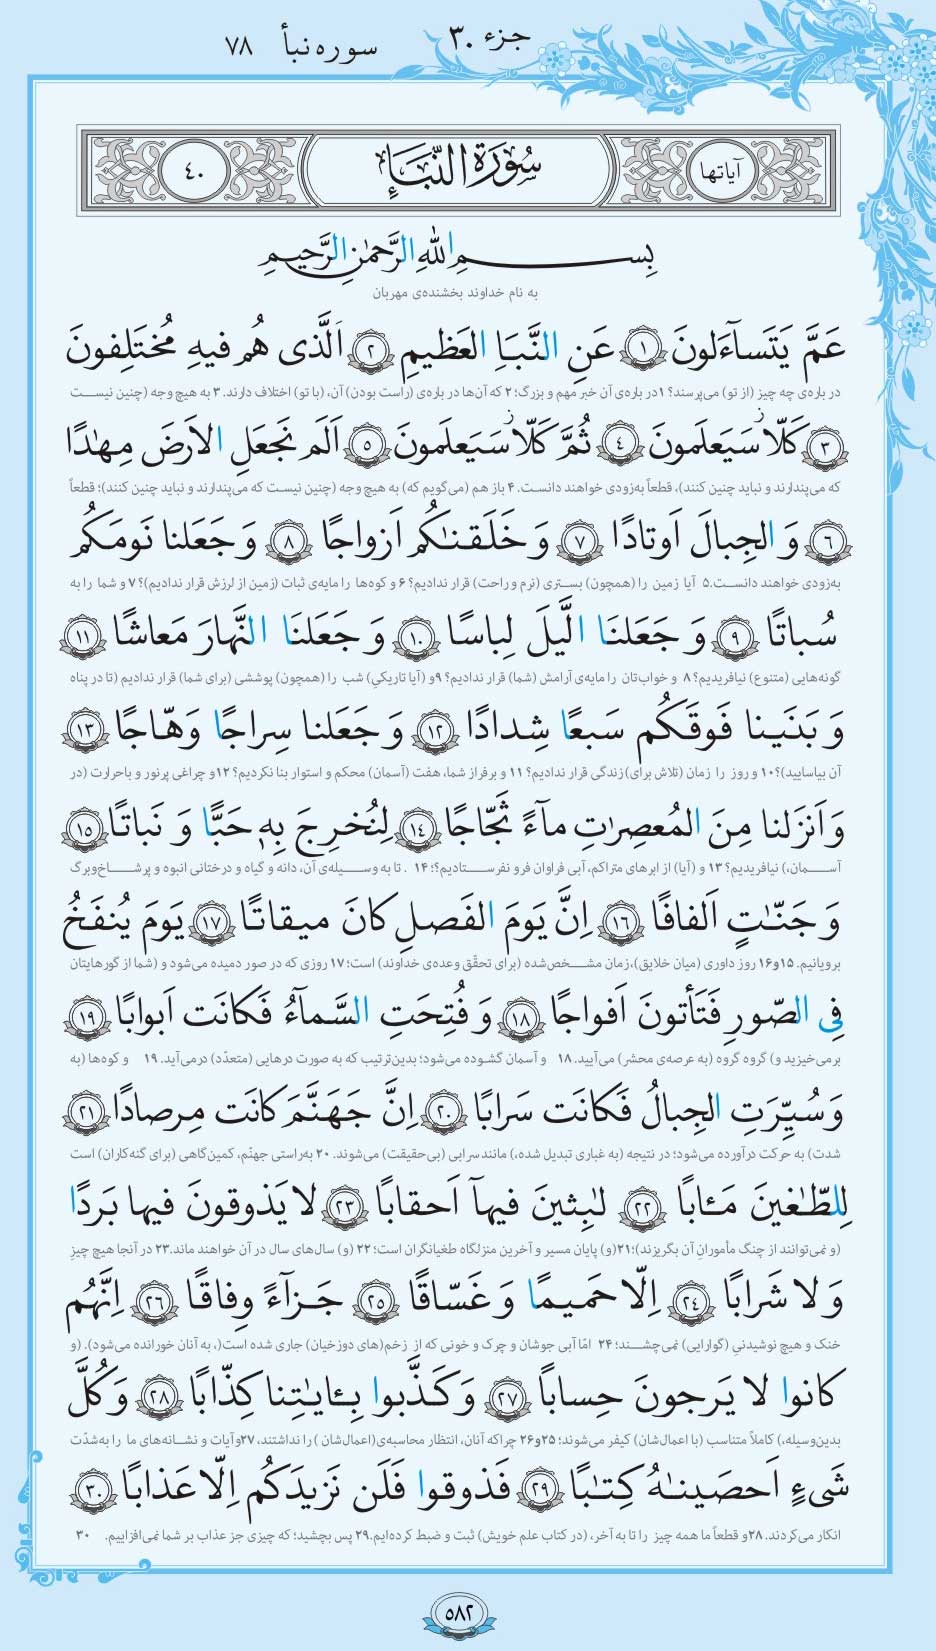 جزء ۳۰
سوره نبأ ۷۸
آیاتها
سُورَةُ النَّبَإِ
٤٠
بِسمِ اللهِ الرَّحمٰنِ الرَّحیمِ
به نام خداوند بخشنده‌ی مهربان
عَمَّ یَتَسآءَلونَ ﴿١﴾ عَنِ النَّبَاِ العَظیمِ ﴿٢﴾ اَلَّذی هُم فیهِ مُختَلِفونَ
در باره‌ی چه چیز (از تو) می‌پرسند؟ ۱ در باره‌ی آن خبر مهم و بزرگ؛ ۲ که آن‌ها در باره‌ی (راست بودن) آن، (با تو) اختلاف دارند. ۳ به هیچ وجه (چنین نیست
﴿٣﴾ کَلّا سَیَعلَمونَ ﴿٤﴾ ثُمَّ کَلّا سَیَعلَمونَ ﴿٥﴾ اَلَم نَجعَلِ الاَرضَ مِهٰدًا
که می‌پندارند و نباید چنین کنند)، قطعاً به‌زودی خواهند دانست. ۴ باز هم (می‌گویم که) به هیچ وجه (چنین نیست که می‌پندارند و نباید چنین کنند)؛ قطعاً
﴿٦﴾ وَ الجِبالَ اَوتادًا ﴿٧﴾ وَ خَلَقنٰکُم اَزواجًا ﴿٨﴾ وَ جَعَلنا نَومَکُم
به‌زودی خواهند دانست. ۵ آیا زمین را (همچون) بستری (نرم و راحت) قرار ندادیم؟ ۶ و کوه‌ها را مایه‌ی ثبات (زمین از لرزش قرار ندادیم)؟ ۷ و شما را به
سُباتًا ﴿٩﴾ وَ جَعَلنَا الَّیلَ لِباسًا ﴿١٠﴾ وَ جَعَلنَا النَّهارَ مَعاشًا ﴿١١﴾
گونه‌هایی (متنوع) نیافریدیم؟ ۸ و خوابتان را مایه‌ی آرامش (شما) قرار ندادیم؟ ۹ و (آیا تاریکی) شب را (همچون) پوششی (برای شما) قرار ندادیم (تا در پناه
وَ بَنَینا فَوقَکُم سَبعًا شِدادًا ﴿١٢﴾ وَ جَعَلنا سِراجًا وَهّاجًا ﴿١٣﴾
آن بیاسایید)؟ ۱۰ و روز را زمان (تلاش برای) زندگی قرار ندادیم؟ ۱۱ و برفراز شما، هفت (آسمان) محکم و استوار بنا نکردیم؟ ۱۲ و چراغی پرنور و باحرارت (در
وَ اَنزَلنا مِنَ المُعصِرٰتِ مآءً ثَجّاجًا ﴿١٤﴾ لِنُخرِجَ بِهٖ حَبًّا وَ نَباتًا ﴿١٥﴾
آسمان،) نیافریدیم؟ ۱۳ و (آیا) از ابرهای متراکم، آبی فراوان فرو نفرستادیم؟؛ ۱۴ . تا به وسیله‌ی آن، دانه و گیاه و درختانی انبوه و پرشاخ‌وبرگ
وَ جَنّٰتٍ اَلفافًا ﴿١٦﴾ اِنَّ یَومَ الفَصلِ کانَ میقاتًا ﴿١٧﴾ یَومَ یُنفَخُ
برویانیم. ۱۵و۱۶ روز داوری (میان خلایق)، زمان مشخص‌شده (برای تحقّق وعده‌ی خداوند) است؛ ۱۷ روزی که در صور دمیده می‌شود و (شما از گورهایتان
فِی الصّورِ فَتَأتونَ اَفواجًا ﴿١٨﴾ وَ فُتِحَتِ السَّمآءُ فَکانَت اَبوابًا ﴿١٩﴾
برمی‌خیزید و) گروه گروه (به عرصه‌ی محشر) می‌آیید. ۱۸ و آسمان گشوده می‌شود؛ بدین‌ترتیب که به صورت درهایی (متعدّد) درمی‌آید. ۱۹ و کوه‌ها (به
وَ سُیِّرَتِ الجِبالُ فَکانَت سَرابًا ﴿٢٠﴾ اِنَّ جَهَنَّمَ کانَت مِرصادًا ﴿٢١﴾
شدت) به حرکت درآورده می‌شود؛ در نتیجه (به غباری تبدیل شده،) مانند سرابی (بی‌حقیقت) می‌شوند. ۲۰ به‌راستی جهنّم، کمین‌گاهی (برای گنه‌کاران) است
لِلطّٰغینَ مَـٔابًا ﴿٢٢﴾ لٰبِثینَ فیهآ اَحقابًا ﴿٢٣﴾ لا یَذوقونَ فیها بَردًا
(و نمی‌توانند از چنگ مأموران آن بگریزند)؛ ۲۱ (و) پایان مسیر و آخرین منزلگاه طغیانگران است؛ ۲۲ (و) سال‌های سال در آن خواهند ماند. ۲۳ در آنجا هیچ چیزِ
وَ لا شَرابًا ﴿٢٤﴾ اِلّا حَمیمًا وَ غَسّاقًا ﴿٢٥﴾ جَزآءً وِفاقًا ﴿٢٦﴾ اِنَّهُم
خنک و هیچ نوشیدنیِ (گوارایی) نمی‌چشند؛ ۲۴ امّا آبی جوشان و چرک و خونی که از زخم(های دوزخیان) جاری شده است(، به آنان خورانده می‌شود). (و
کانوا لا یَرجونَ حِسابًا ﴿٢٧﴾ وَ کَذَّبوا بِـٔایٰتِنا کِذّابًا ﴿٢٨﴾ وَ کُلَّ
بدین‌وسیله،) کاملاً متناسب (با اعمال‌شان) کیفر می‌شوند؛ ۲۵و۲۶ چراکه آنان، انتظار محاسبه‌ی (اعمال‌شان) را نداشتند، ۲۷ و آیات و نشانه‌های ما را به‌شدّت
شَیءٍ اَحصَینٰهُ کِتٰبًا ﴿٢٩﴾ فَذوقوا فَلَن نَزیدَکُم اِلّا عَذابًا ﴿٣٠﴾
انکار می‌کردند. ۲۸ و قطعاً ما همه چیز را تا به آخر، (در کتاب علم خویش) ثبت و ضبط کرده‌ایم. ۲۹ پس بچشید؛ که چیزی جز عذاب بر شما نمی‌افزاییم. ۳۰
٥٨٢